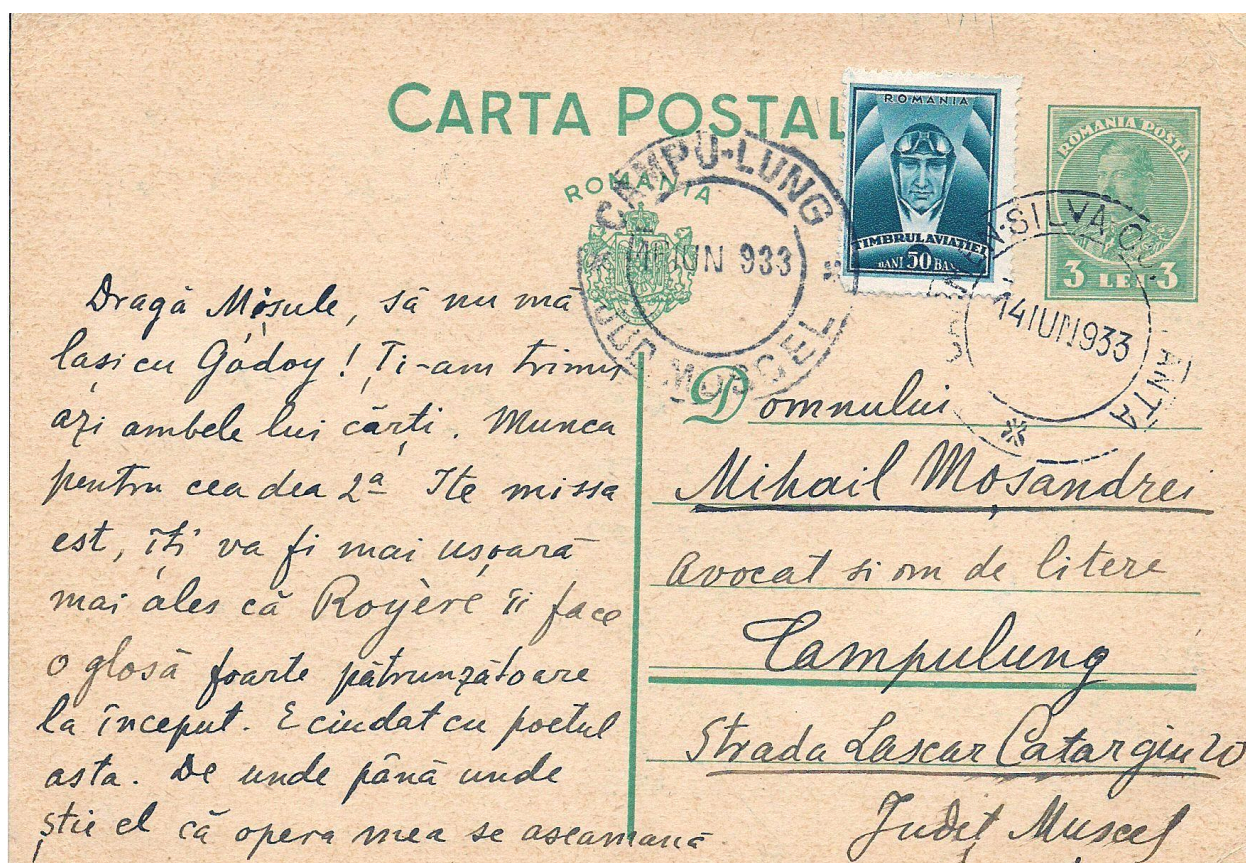 CARTA POSTAL
ROMANIA
ROMANIA
TIMBRUL AVIATIEI
BANI 50 BANI
ROMANIA POSTA
3 LEI 3
CAMPU-LUNG
14 IUN 933
JUD MUSCEL
CARMEN-SILVA
14 IUN 933
Dragă Moșule, să nu mă
lași cu Godoy! Ți-am trimis
azi ambele lui cărți. Munca
pentru cea dea 2ª Ite missa
est, îți va fi mai ușoară
mai ales că Royère îi face
o glosă foarte pătrunzătoare
la început. E ciudat cu poetul
asta. De unde până unde
știe el că opera mea se aseamănă
Domnului
Mihail Moșandrei
Avocat si om de litere
Campulung
Strada Lascar Catargiu 20
Județ Muscel